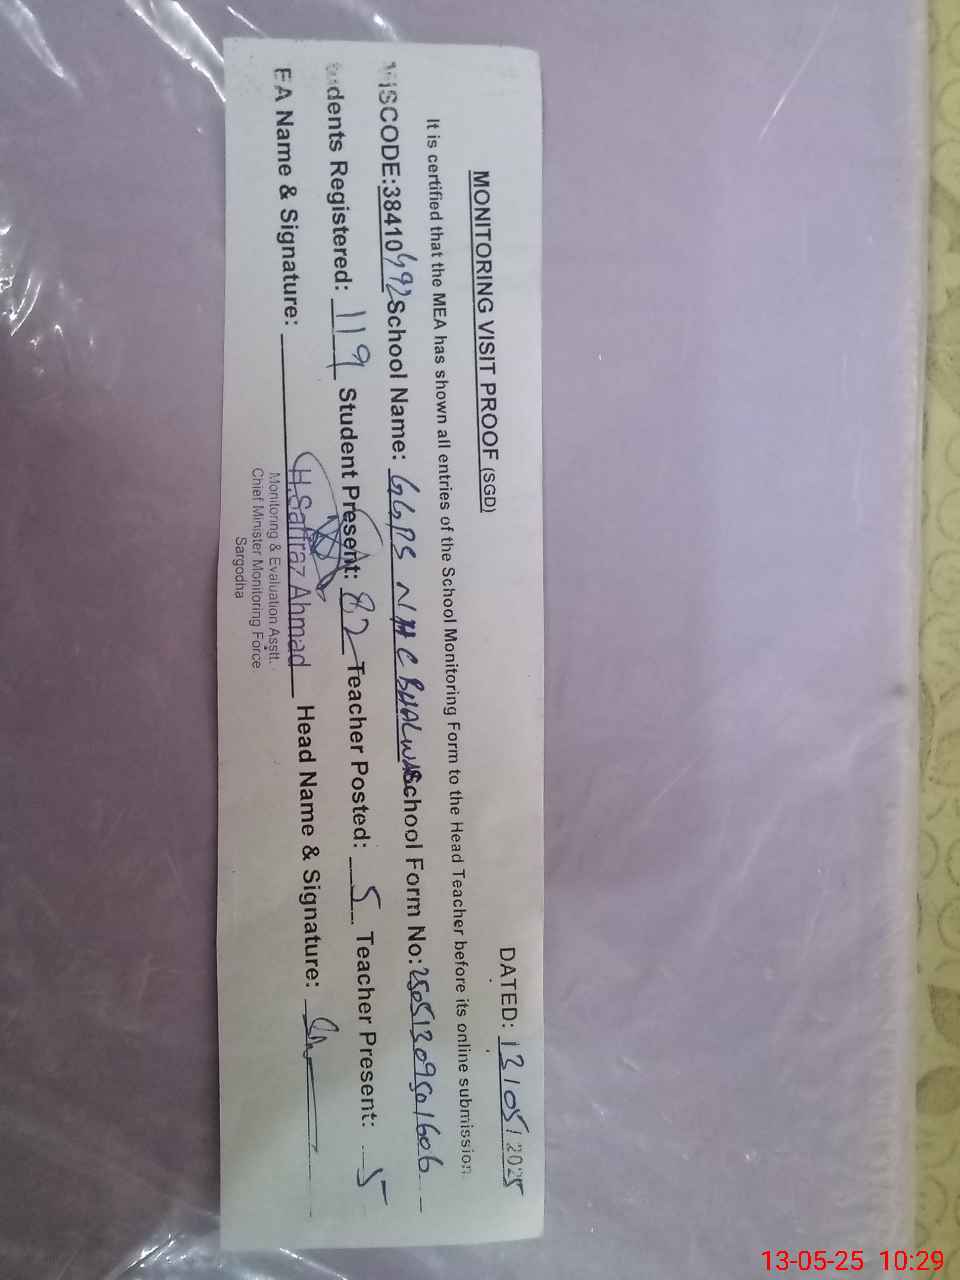 MONITORING VISIT PROOF (SGD)
DATED: 13/05/2025
It is certified that the MEA has shown all entries of the School Monitoring Form to the Head Teacher before its online submission.
MISCODE:38410492 School Name: GGPS NHC BHALWAL School Form No: 25051309501606
udents Registered: 119 Student Present: 82 Teacher Posted: 5 Teacher Present: 5
EA Name & Signature: H.Safraz Ahmad Head Name & Signature:
Monitoring & Evaluation Asstt.
Chief Minister Monitoring Force
Sargodha
13-05-25 10:29